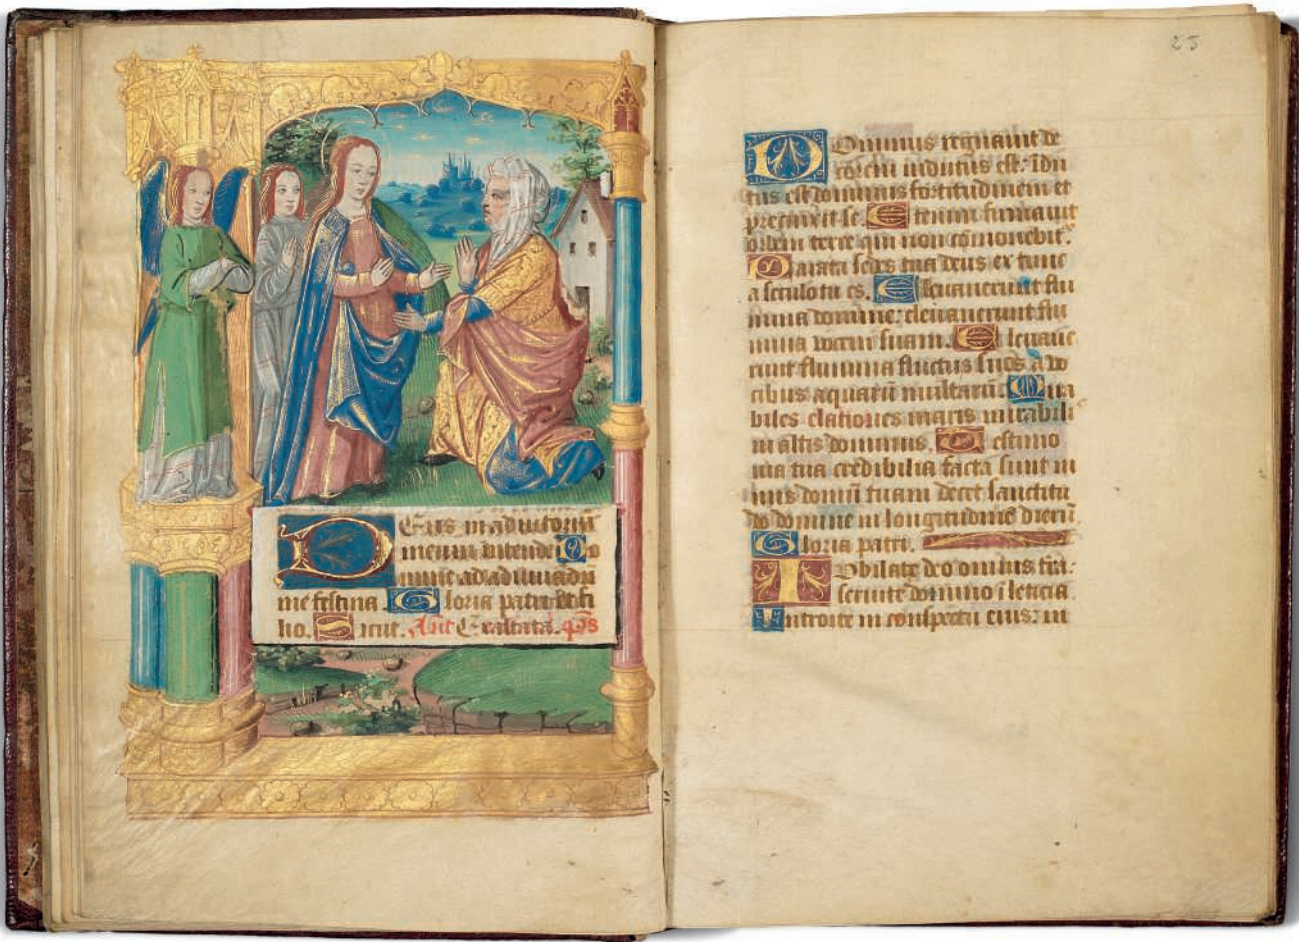 Deus in adiutoriū
meum intende. Do
mine ad adiuuandū
me festina. Gloria patri et fi
lio. Sicut. Añt Exaltata. p̄s
25
Dominus regnauit de
corem indutus est: indu
tus est dominus fortitudinem et
precinxit se. Etenim firmauit
orbem terre qui non cōmouebit̄.
Parata sedes tua deus ex tunc
a seculo tu es. Eleuauerunt flu
mina domine: eleuauerunt flu
mina vocem suam. Eleuaue
runt flumina fluctus suos a vo
cibus aquarū multarū. Mira
biles elationes maris mirabili
in altis dominus. Testimo
nia tua credibilia facta sunt ni
mis domū tuam decet sanctitu
do domine in longitudinē dierū.
Gloria patri.
Iubilate deo omnis tra:
seruite domino i leticia
Introite in conspectu eius: in